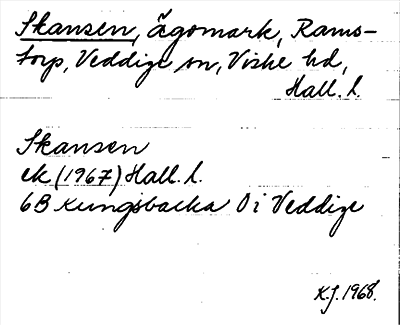 Skansen, ägomark, Rams-
torp, Veddige sn, Viske hd,
Hall. l.
Skansen
ek (1967) Hall. l.
6B Kungsbacka 0 i Veddige
K.J. 1968.